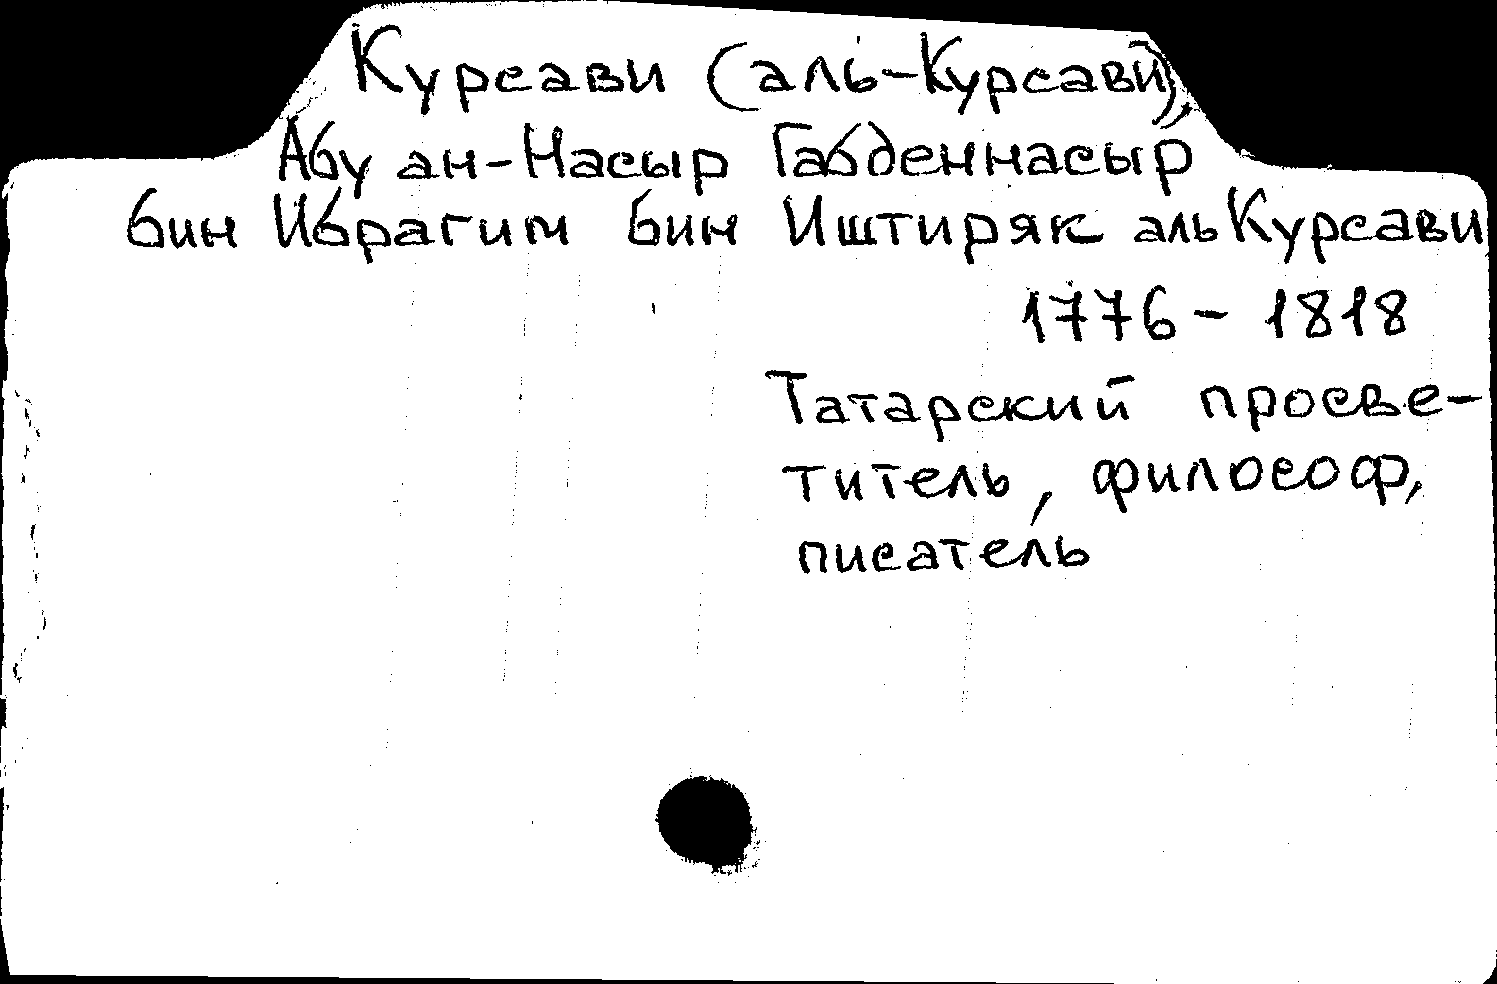 Курсави (аль-Курсави),
Абу ан-Насыр Габденнасыр
бин Ибрагим бин Иштиряк аль Курсави
1776-1818
Татарский просве-
титель, философ,
писатель